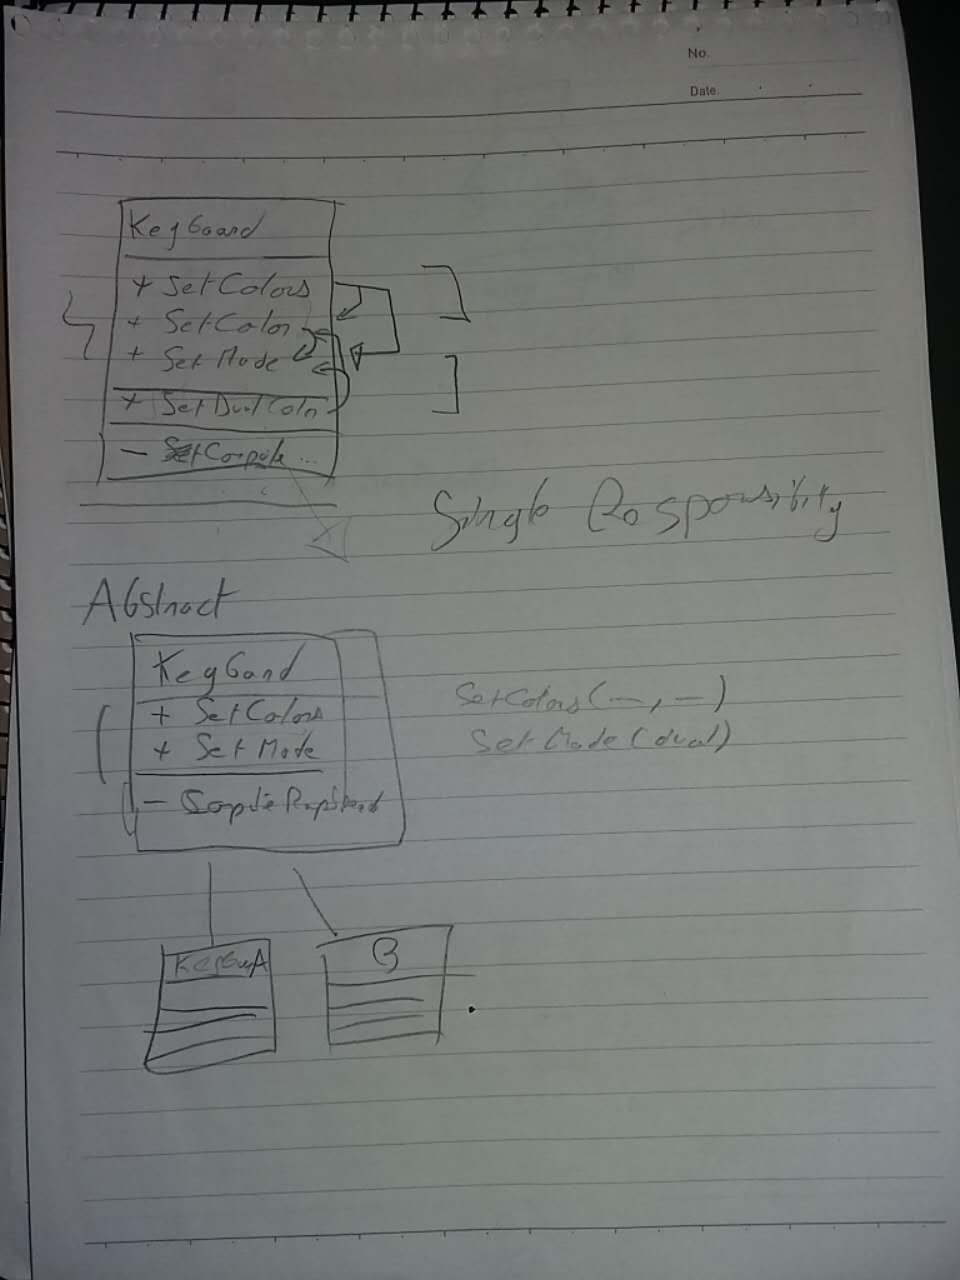 No.
Date.
KeyBoard
+ SetColors
+ SetColor
+ Set Mode
+ SetDualColor
- SetCompute...
Single Responsibility
Abstract
KeyBoard
+ SetColors
+ Set Mode
SetColors(—, —)
Set Mode (dual)
A
B